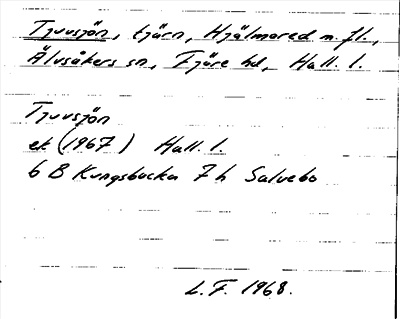 Tjuvsjön, tjärn, Hjälmared m. fl.,
Älvsåkers sn, Fjäre hd, Hall. l.
Tjuvsjön
ek (1967) Hall. l.
6 B Kungsbacka 7 h Salvebo
L.F. 1968.